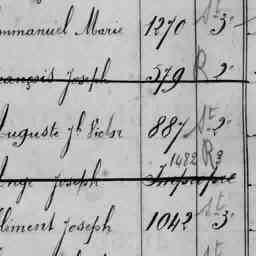 mmanuel Marie 1270 St 3e
rançois Joseph 579 R 2e
Auguste Jh Victor 887 St 2e
1482 R 3
Ange Joseph Impropre
lément Joseph 1042 St 3e
St